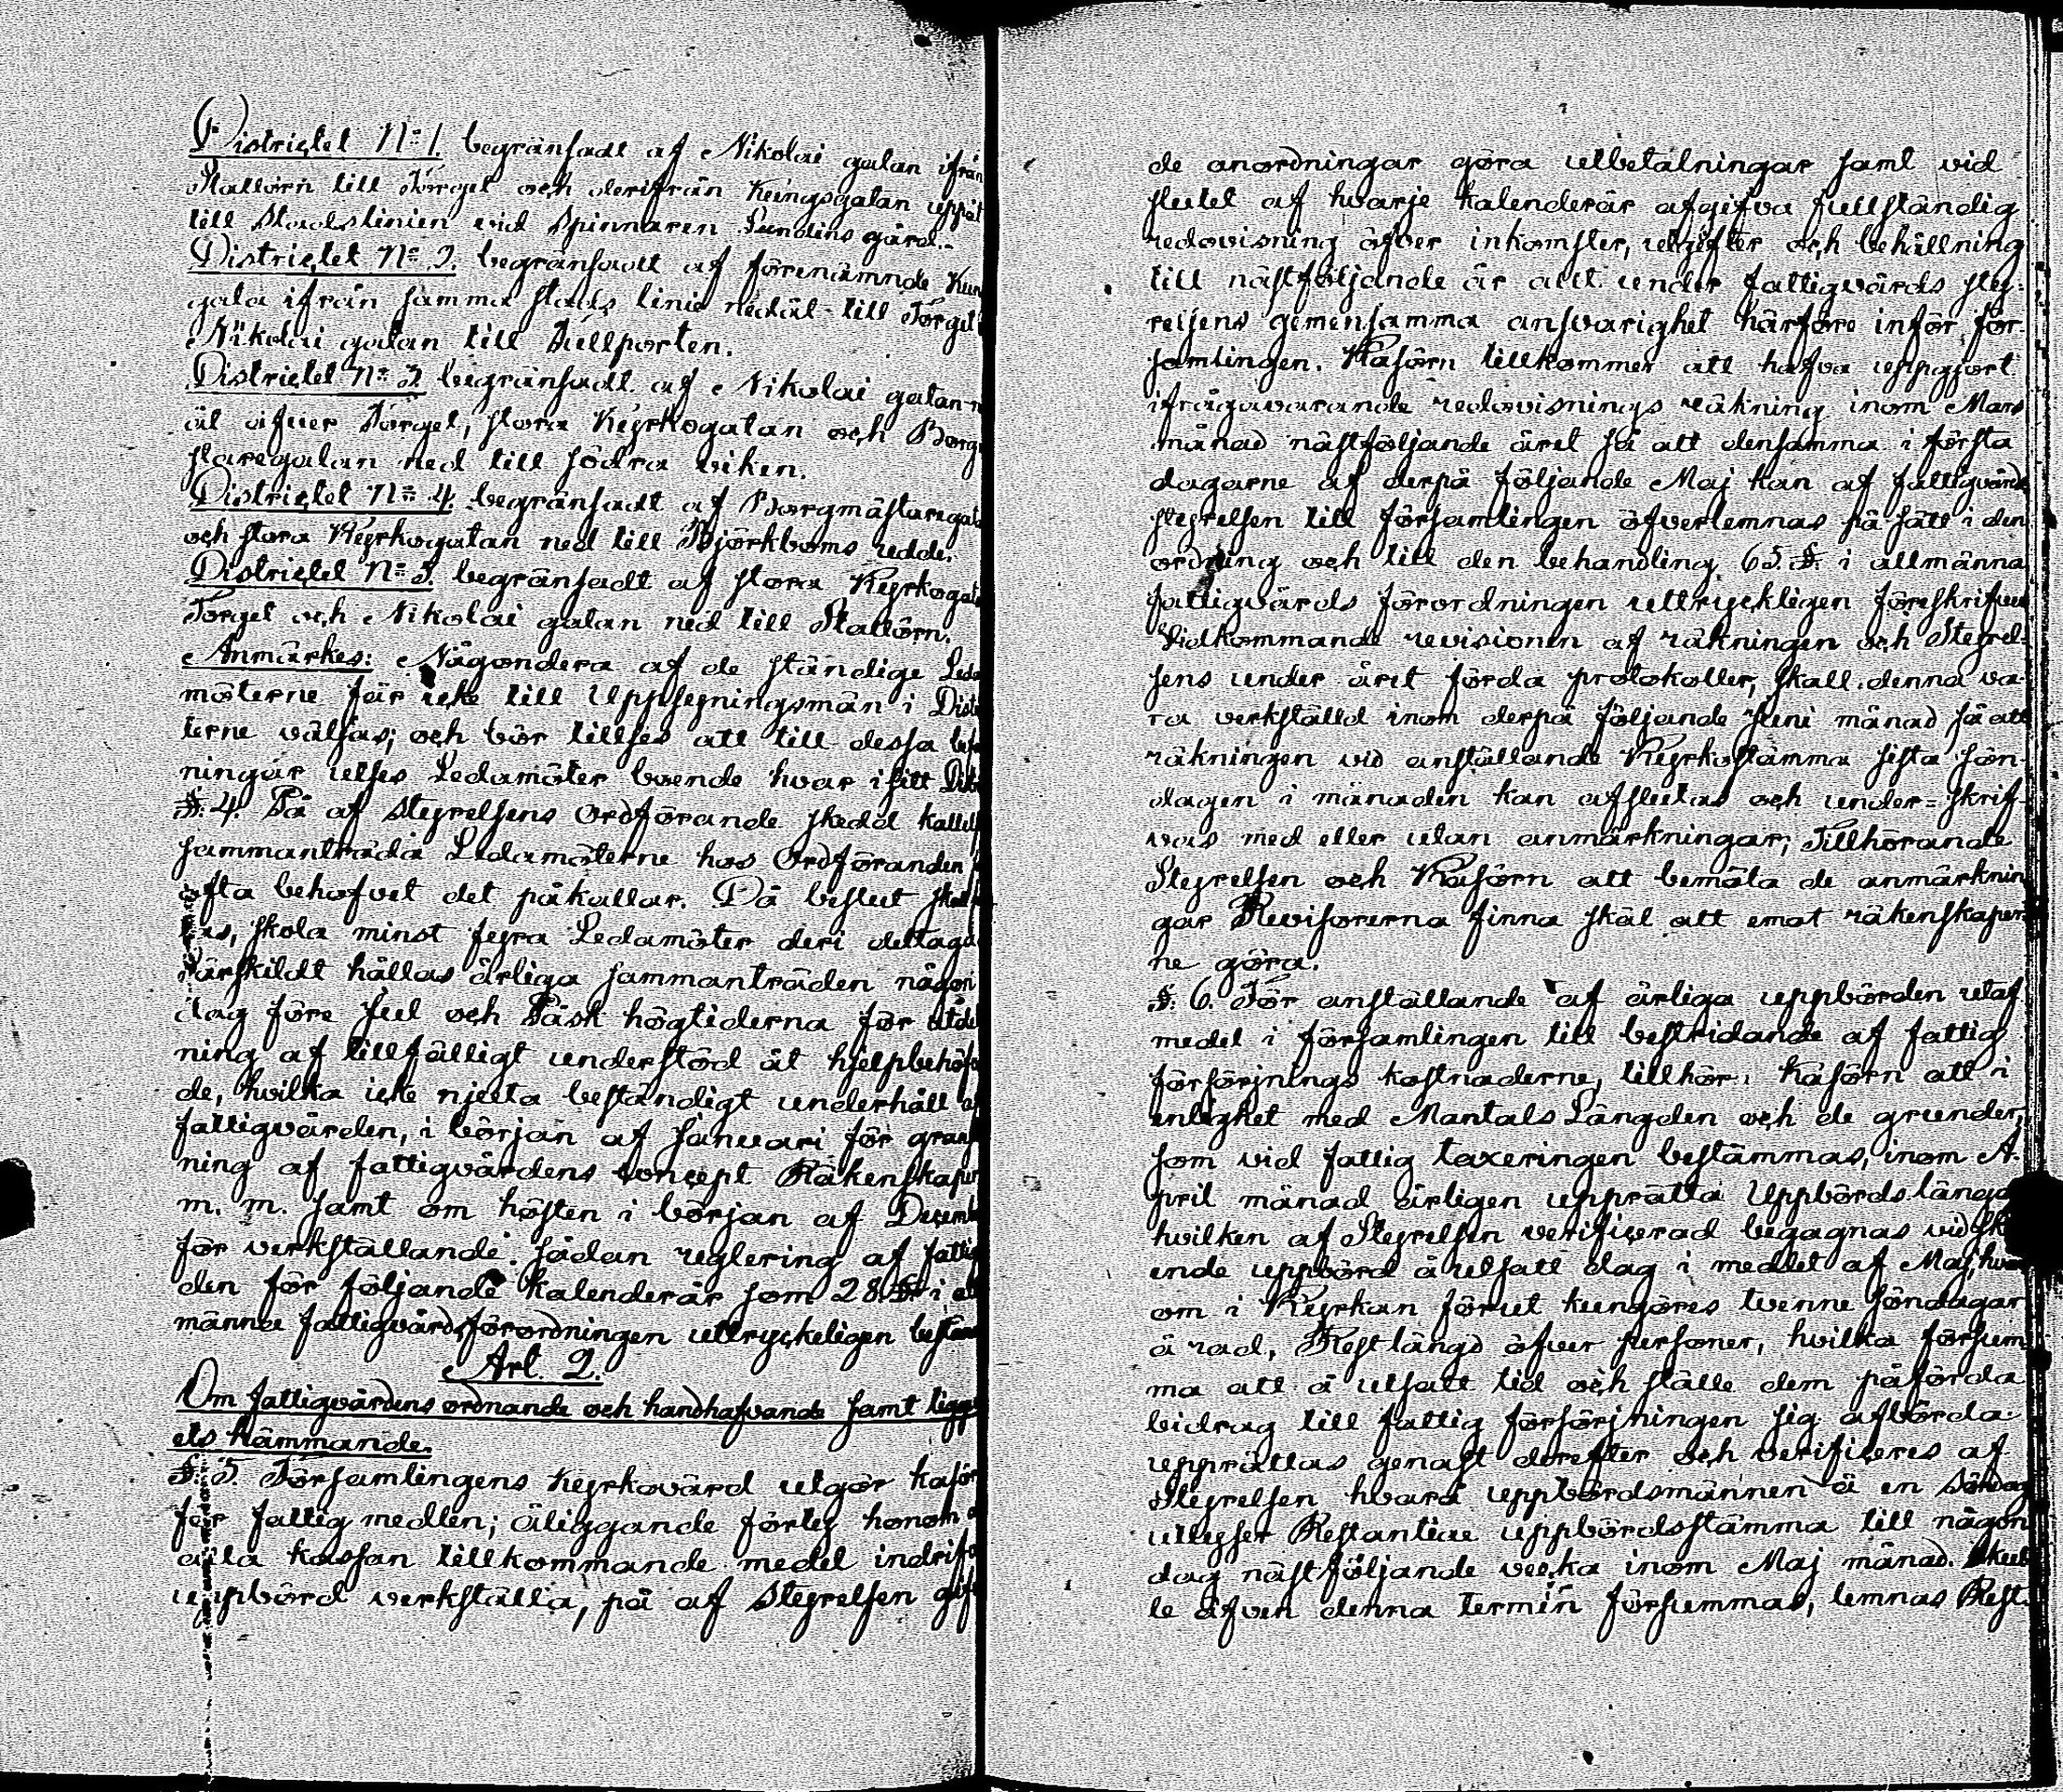 Districtet No 1. begränsadt af Nikolai gatan ifrån
Stallörn till Torget och derifrån Kungsgatan uppåt
till Stadslinien vid Spinnaren Sundins gård.
Districtet No 2. begränsadt af förenämnde Kun
gata ifrån samma stads linie nedåt till Torget
Nikolai gatan till Tullporten.
Districtet No 3. begränsadt af Nikolai gatan n
åt öfver Torget, stora Kyrkogatan och Borgm
staregatan ned till södra viken.
Districtet No 4. begränsadt af Borgmästaregat
och stora Kyrkogatan ned till Björkboms udde.
Districtet No 5. begränsadt af stora Kyrkogat
Torget och Nikolai gatan ned till Stallörn.
Anmärkes: Någondera af de ständige Leda
möterne får icke till Uppsyningsmän i Distr
terne väljas; och bör tillses att till dessa bef
ningar utses Ledamöter boende hvar i sitt Dis
§. 4. På af Styrelsens Ordförande skedd kallels
sammanträda Ledamöterne hos Ordföranden
ofta behofvet det påkallar. Då beslut skal
tas, skola minst fyra Ledamöter deri deltaga
särskildt hållas årliga sammanträden någon
dag före Jul och Påsk högtiderna för utdel
ning af tillfälligt understöd åt hjelpbehöfv
de, hvilka icke njuta beständigt underhåll af
fattigvården, i början af Januari för gransk
ning af fattigvårdens concept Räkenskaper
m. m. samt om hösten i början af Decemb
för verkställande sådan reglering af fattig
den för följande kalenderår som 28. §. i all
männa fattigvårdsförordningen uttryckeligen bestäm
Art. 2.
Om fattigvårdens ordnande och handhafvande samt tigge
ets hämmande.
§. 5. Församlingens Kyrkovärd utgör kasör
för fattig medlen; åliggande förty honom a
alla kassan tillkommande medel indrifva
uppbörd verkställa, på af Styrelsen gif
de anordningar göra utbetalningar samt vid
slutet af hvarje kalenderår afgifva fullständig
redovisning öfver inkomster, utgifter och behållning
till nästföljande år allt under fattigvårds sty-
relsens gemensamma ansvarighet härföre inför för-
samlingen. Kasörn tillkommer att hafva uppgjort
ifrågavarande redovisnings räkning inom Mars
månad nästföljande året så att densamma i första
dagarne af derpå följande Maj kan af fattigvårds
styrelsen till församlingen öfverlemnas på sätt i den
ordning och till den behandling 65. §. i allmänna
fattigvårds förordningen uttryckligen föreskrifver
Vidkommande revisionen af räkningen och Styrel-
sens under året förda protokoller, skall denna va-
ra verkställd inom derpå följande Juni månad så att
räkningen vid anställande Kyrkostämma sista sön-
dagen i månaden kan afslutas och under-skrif-
vas med eller utan anmärkningar; Tillhörande
Styrelsen och Kasörn att bemöta de anmärknin
gar Revisorerna finna skäl att emot räkenskaper
ne göra.
§. 6. För anställande af årliga uppbörden utaf
medel i församlingen till bestridande af fattig
försörjnings kostnaderne, tillhör Kasörn att i
enlighet med Mantals Längden och de grunder,
som vid fattig taxeringen bestämmas, inom A-
pril månad årligen upprätta Uppbörds längd
hvilken af Styrelsen verificerad begagnas vid ske
ende uppbörd å utsatt dag i medlet af Maj, hvar
om i Kyrkan förut kungöres tvenne söndagar
å rad, Restlängd öfver personer, hvilka försum-
ma att å utsatt tid och ställe dem påförda
bidrag till fattig försörjningen sig afbörda
upprättas genast derefter och verificeres af
Styrelsen hvarå uppbördsmännen å en Söndag
utlyser Restantiae uppbördsstämma till någon
dag nästföljande vecka inom Maj månad. Skul
le äfven denna termin försummas, lemnas Rest.